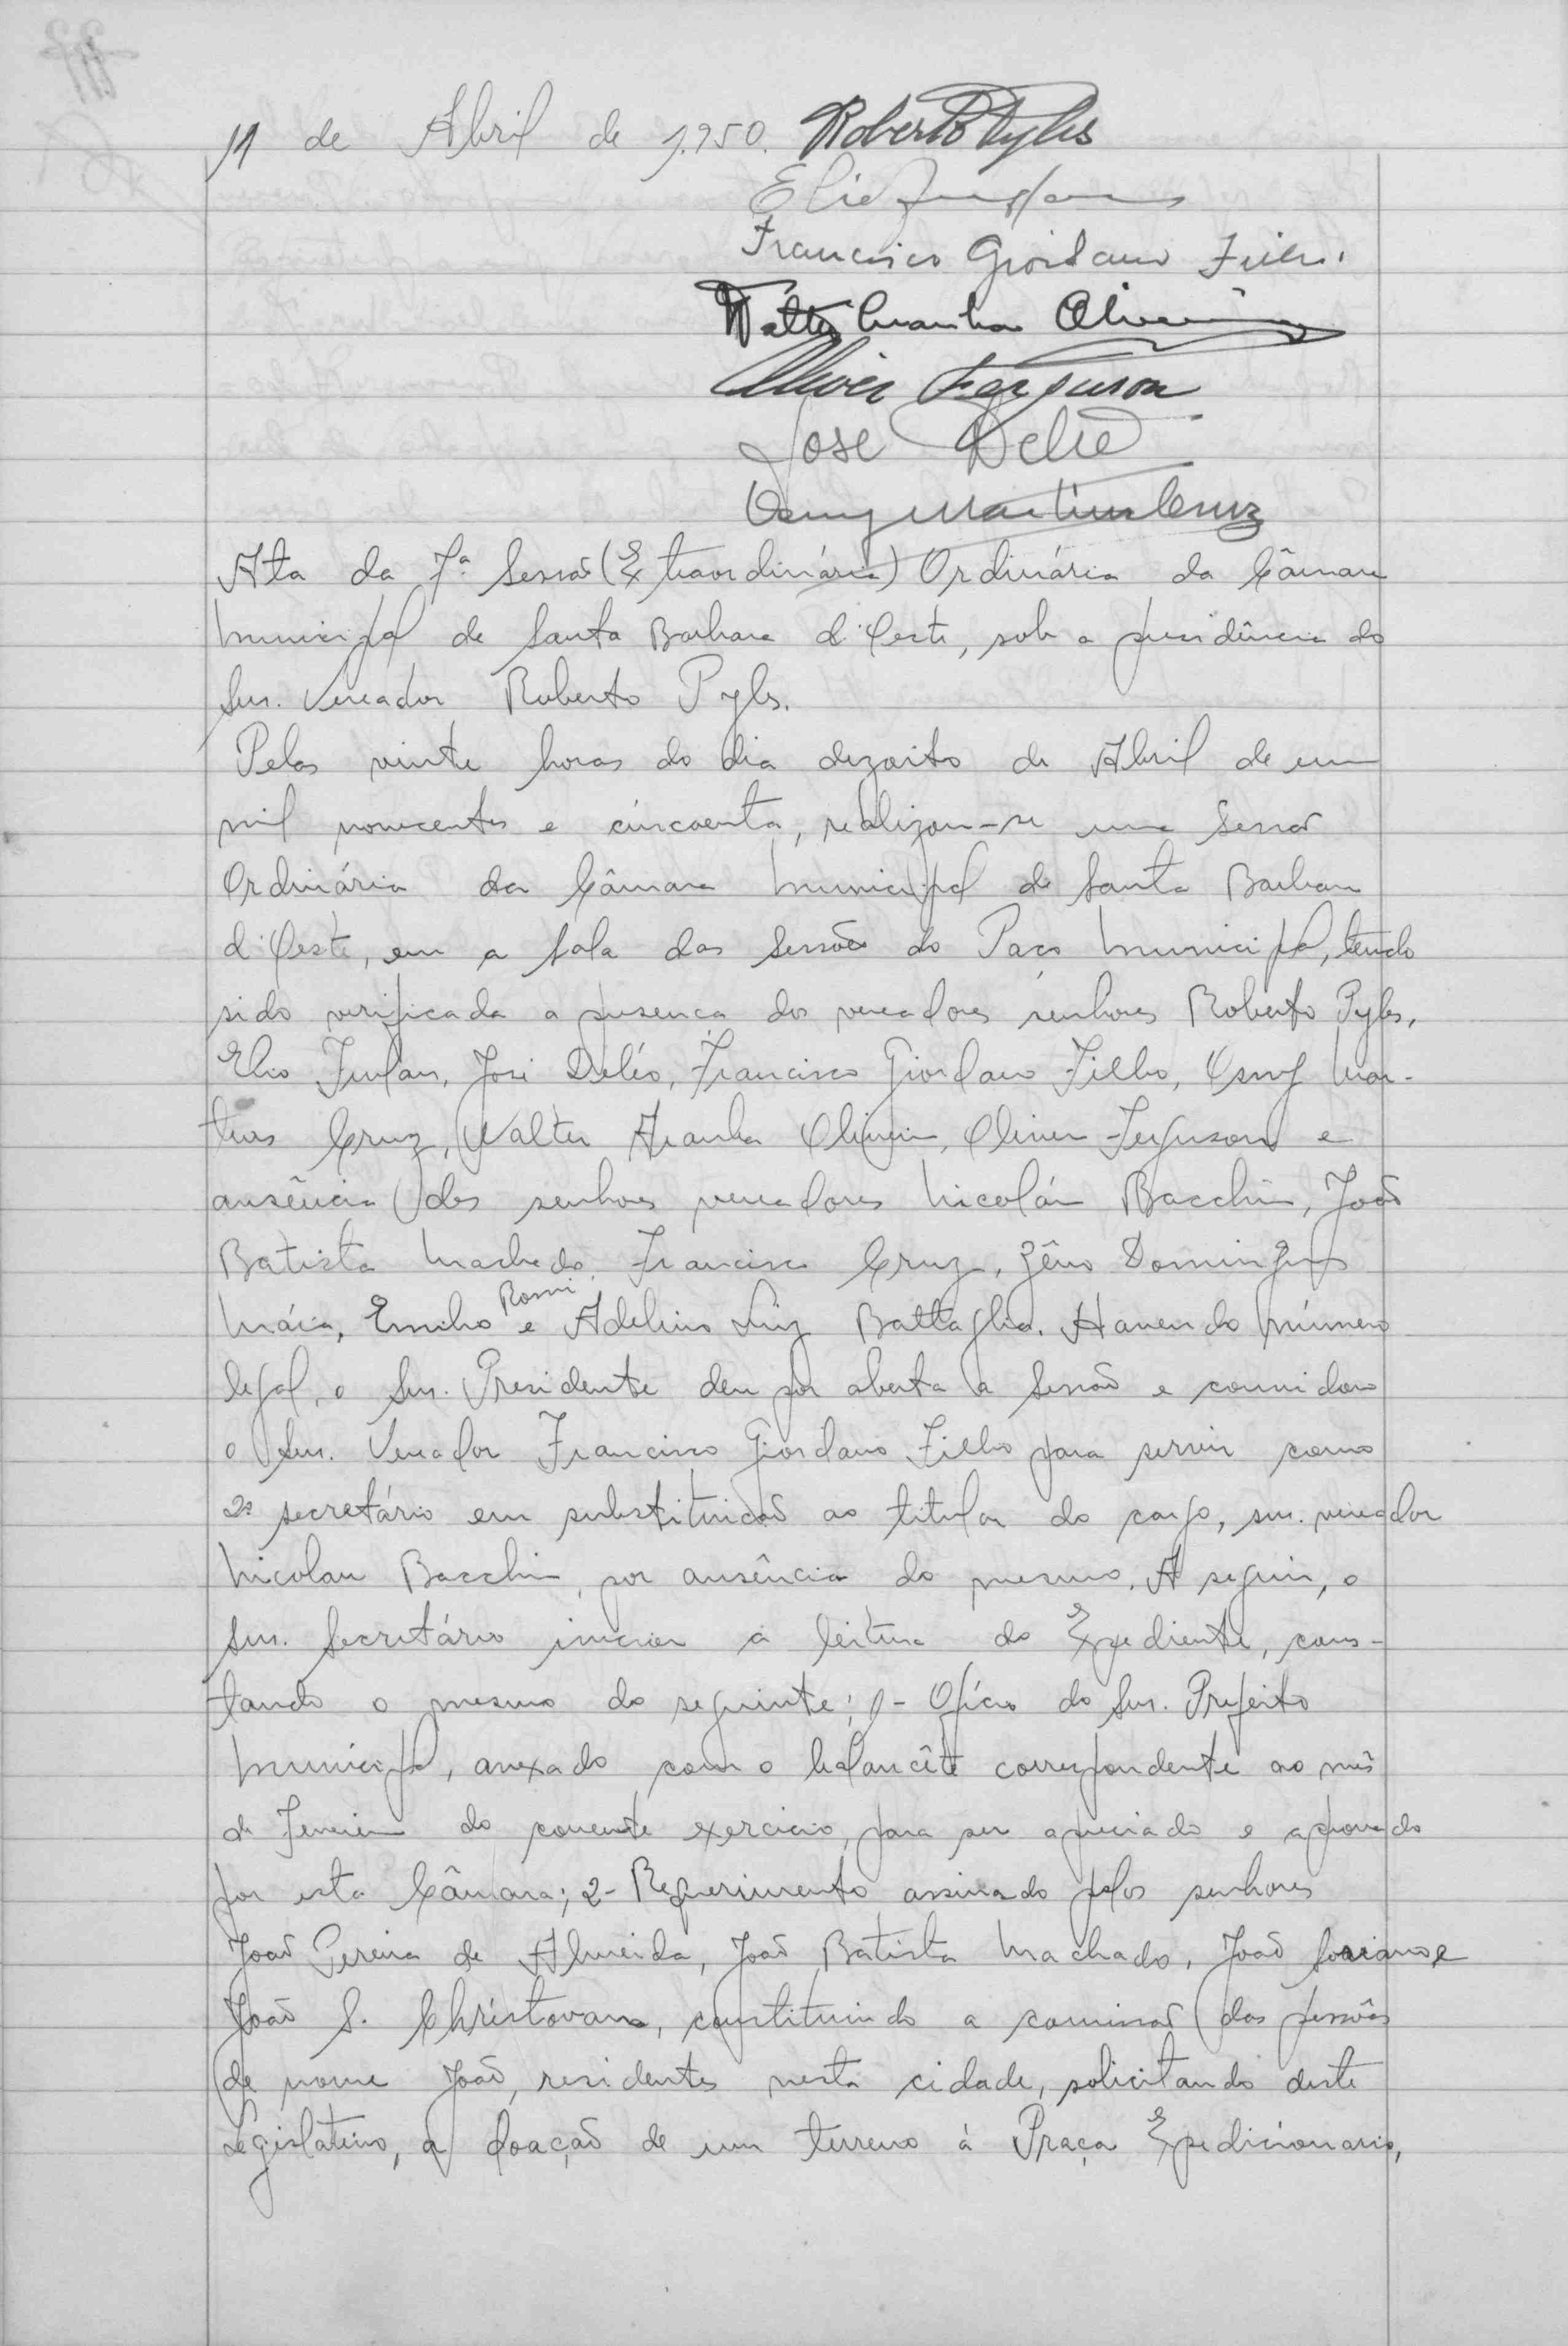 11 de Abril de 1.950. Roberto Pyles
Francisco Giordano Filho.
Walter Aranha Oliveira
Oliver Ferguson
José Deléo
Osmy Martins Cruz
Ata da 7ª Sessão (Extraordinária) Ordinária da Câmara
Municipal de Santa Barbara d'Oeste, sob a presidência do
Snr. Vereador Roberto Pyles.
Pelas vinte horas do dia dezoito de Abril de um
mil novecentos e cincoenta, realizou-se uma Sessão
Ordinária da Câmara Municipal de Santa Barbara
d'Oeste, em a sala das Sessões do Paço Municipal, tendo
sido verificada a presença dos vereadores senhores Roberto Pyles,
Elio Furlan, José Deléo, Francisco Giordano Filho, Osmy Mar-
tins Cruz, Walter Aranha Oliveira, Oliver Ferguson e
ausência dos senhores vereadores Nicoláu Bacchin, João
Batista Machado, Francisco Cruz, Zêno Domingues
Máia, Emilio Romi e Adelino Luiz Battaglia. Havendo número
legal, o Snr. Presidente deu por aberta a Sessão e convidou
o Snr. Vereador Francisco Giordano Filho para servir como
2º secretário em substituição ao titular do cargo, snr. vereador
Nicolau Bacchin, por ausência do mesmo. A seguir, o
Snr. Secretário iniciou a leitura do Expediente, cons-
tando o mesmo do seguinte; 1- Ofício do Snr. Prefeito
Municipal, anexado com o balancête correspondente ao mês
de Fevereiro do corrente exercicio, para ser apreciado e aprovado
por esta Câmara; 2- Requerimento assinado pelos senhores
João Pereira de Almeida, João Batista Machado, João Soriano e
João S. Christovam, constituindo a comissão das pessôas
de nome João, residentes nesta cidade, solicitando deste
Legislativo, a doação de um terreno à Praça Expedicionario,